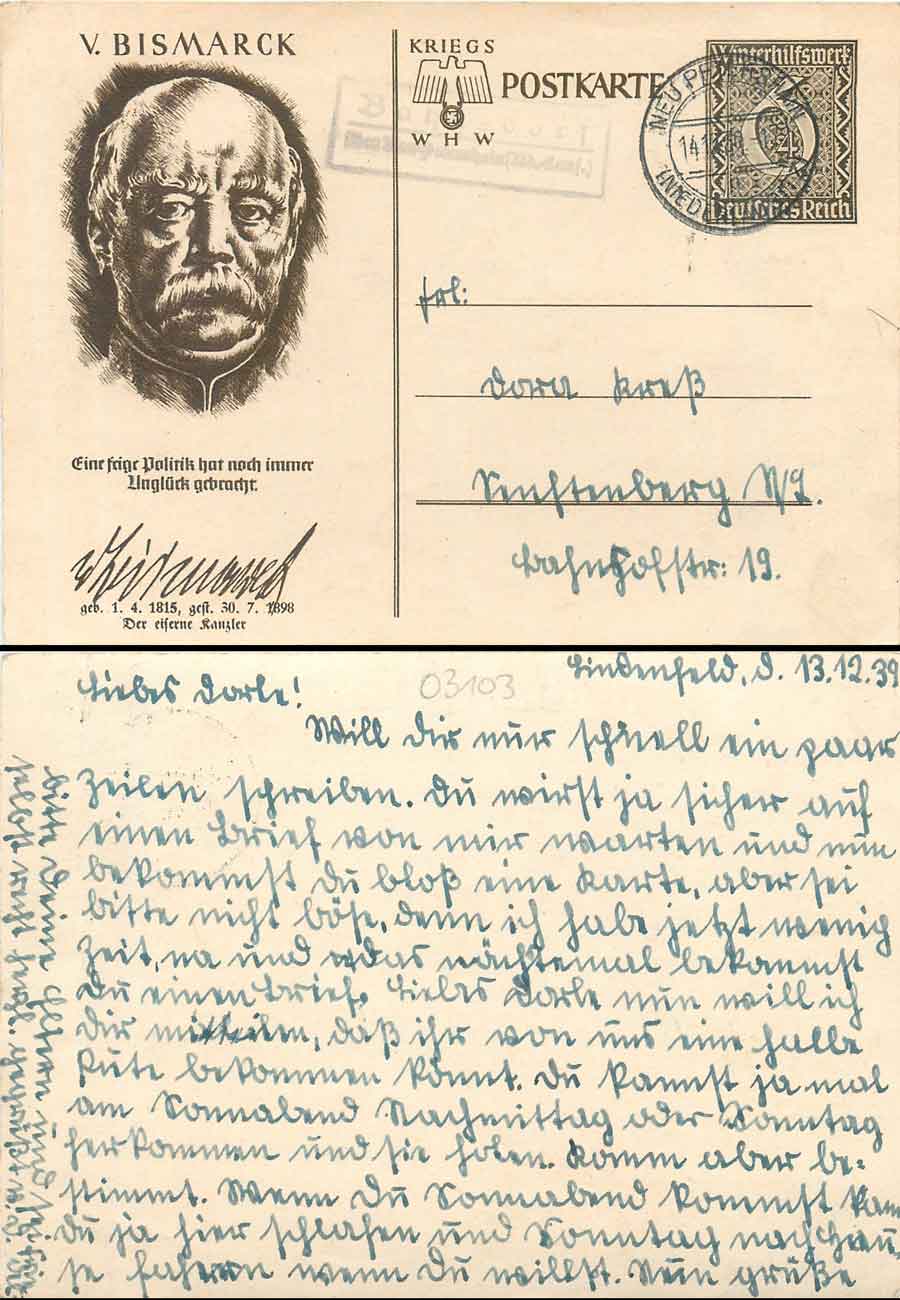 V. BISMARCK
Eine feige Politik hat noch immer
Unglück gebracht.
v Bismarck
geb. 1. 4. 1815, gest. 30. 7. 1898
Der eiserne Kanzler
KRIEGS
WHW
POSTKARTE
Winterhilfswerk
6+4
Deutsches Reich
NEU PE
14.12.39
(NIEDER
Frl:
Dora Kreß
Senftenberg N/L.
Bahnhofstr: 19.
03103
Lindenfeld, d. 13.12.39
Liebes Dorle!
Will dir nur schnell ein paar
Zeilen schreiben. Du wirst ja sicher auf
einen Brief von mir warten und nun
bekommst Du bloß eine Karte, aber sei
bitte nicht böse, denn ich habe jetzt wenig
Zeit, na und das nächstemal bekommst
Du einen Brief. Liebes Dorle nun will ich
Dir mitteilen, daß ihr von uns eine halbe
Pute bekommen könnt. Du kannst ja mal
am Sonnabend Nachmittag oder Sonntag
herkommen und sie holen. Komm aber be-
stimmt. Wenn Du Sonnabend kommst kan
Du ja hier schlafen und Sonntag nach Hau-
se fahren wenn Du willst. Nun grüße
bitte Deine Eltern und sei
selbst recht herzl. gegrüßt v. D.